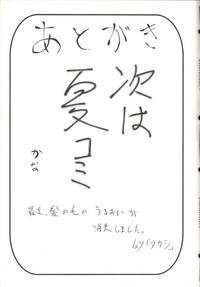 あとがき
次は
夏コミ
かな
最近、髪の毛の うるおいが
消失しました。
by「タカシ」